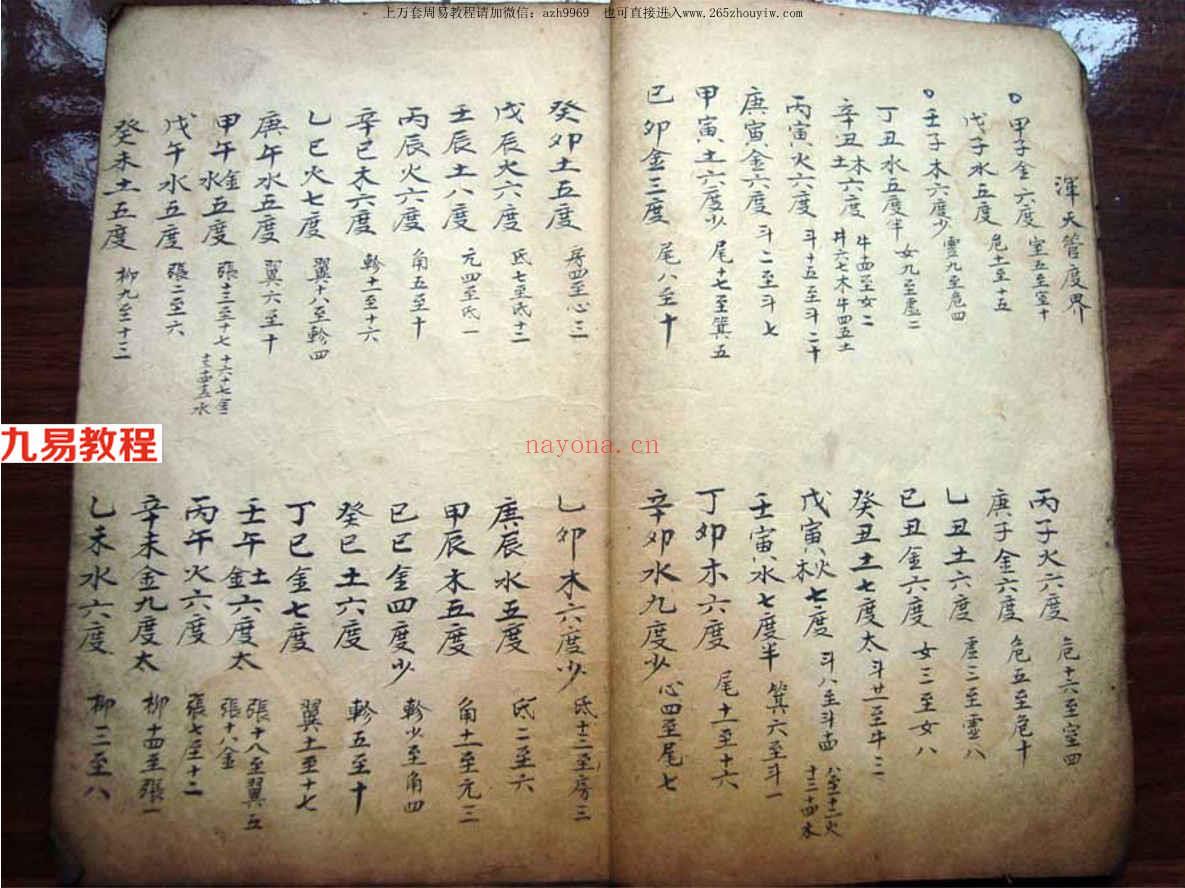 上万套周易教程请加微信：azh9969　也可直接进入www.265zhouyiw.com
渾天管度界
甲子金六度 室五至室十
丙子火六度 危十六至室四
戊子水五度 危十一至十五
庚子金六度 危五至危十
壬子木六度少 虛九至危四
乙丑土六度 虛三至虛八
丁丑水五度半 女九至虛二
己丑金六度 女三至女八
辛丑土木六度 牛四至女二 牛六七木牛四五土
癸丑土七度太 斗廿一至牛三
丙寅火六度 斗十五至斗二十
戊寅火木七度 斗八至斗十四 八至十二火 十三十四木
庚寅金六度 斗二至斗七
壬寅水七度半 箕六至斗一
甲寅土六度少 尾十七至箕五
丁卯木六度 尾十一至十六
己卯金三度 尾八至十
辛卯水九度少 心四至尾七
癸卯土五度 房四至心三
乙卯木六度少 氐十二至房三
戊辰火六度 氐七至氐十二
庚辰水五度 氐二至六
壬辰土八度 亢四至氐一
甲辰木五度 角十一至亢三
丙辰火六度 角五至十
己巳金四度少 軫少至角四
辛巳木六度 軫十一至十六
癸巳土六度 軫五至十
乙巳火七度 翼十八至軫四
丁巳金七度 翼十一至十七
庚午水五度 翼六至十
壬午土金六度太 張十八至翼五 張十八金
甲午金水五度 張十三至十七 十六十七金 十三十四十五水
丙午火六度 張七至十二
戊午水五度 張二至六
辛未金九度太 柳十四至張一
癸未土五度 柳九至十三
乙未水六度 柳三至八
九易教程
nayona.cn